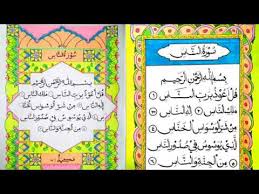 سُورَةُ النَّاسِ
بِسْمِ اللهِ الرَّحْمٰنِ الرَّحِيمِ
قُلْ أَعُوذُ بِرَبِّ النَّاسِ مَلِكِ النَّاسِ
إِلٰهِ النَّاسِ
مِنْ شَرِّ الْوَسْوَاسِ الْخَنَّاسِ
الَّذِي يُوَسْوِسُ فِي صُدُورِ النَّاسِ
مِنَ الْجِنَّةِ وَالنَّاسِ
سُورَةُ النَّاسِ
بِسْمِ اللهِ الرَّحْمٰنِ الرَّحِيمِ
قُلْ أَعُوذُ بِرَبِّ النَّاسِ مَلِكِ
النَّاسِ إِلٰهِ النَّاسِ
مِنْ شَرِّ الْوَسْوَاسِ
يُوَسْوِسُ فِي صُدُورِ النَّاسِ
مِنَ الْجِنَّةِ وَالنَّاسِ